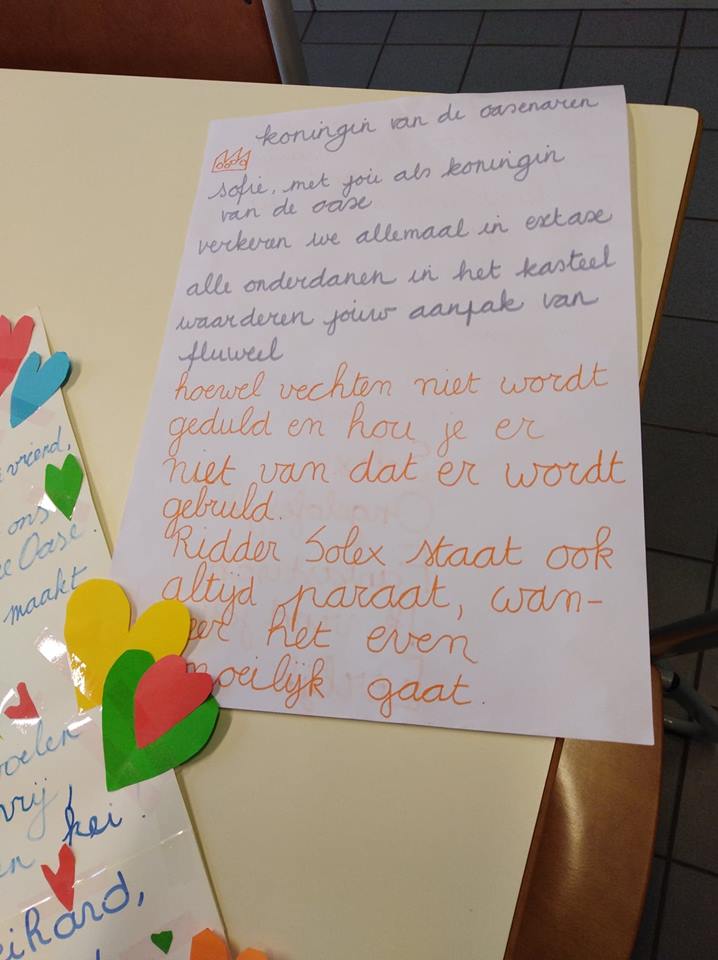 koningin van de oasenaren
sofie, met jou als koningin
van de oase
verkeren we allemaal in extase
alle onderdanen in het kasteel
waarderen jouw aanpak van
fluweel
hoewel vechten niet wordt
geduld en hou je er
niet van dat er wordt
gebruld.
Ridder Solex staat ook
altijd paraat, wan-
eer het even
moeilijk gaat.
vriend,
ons
Oase.
maakt
voelen
vrij,
en kei.
eihard,